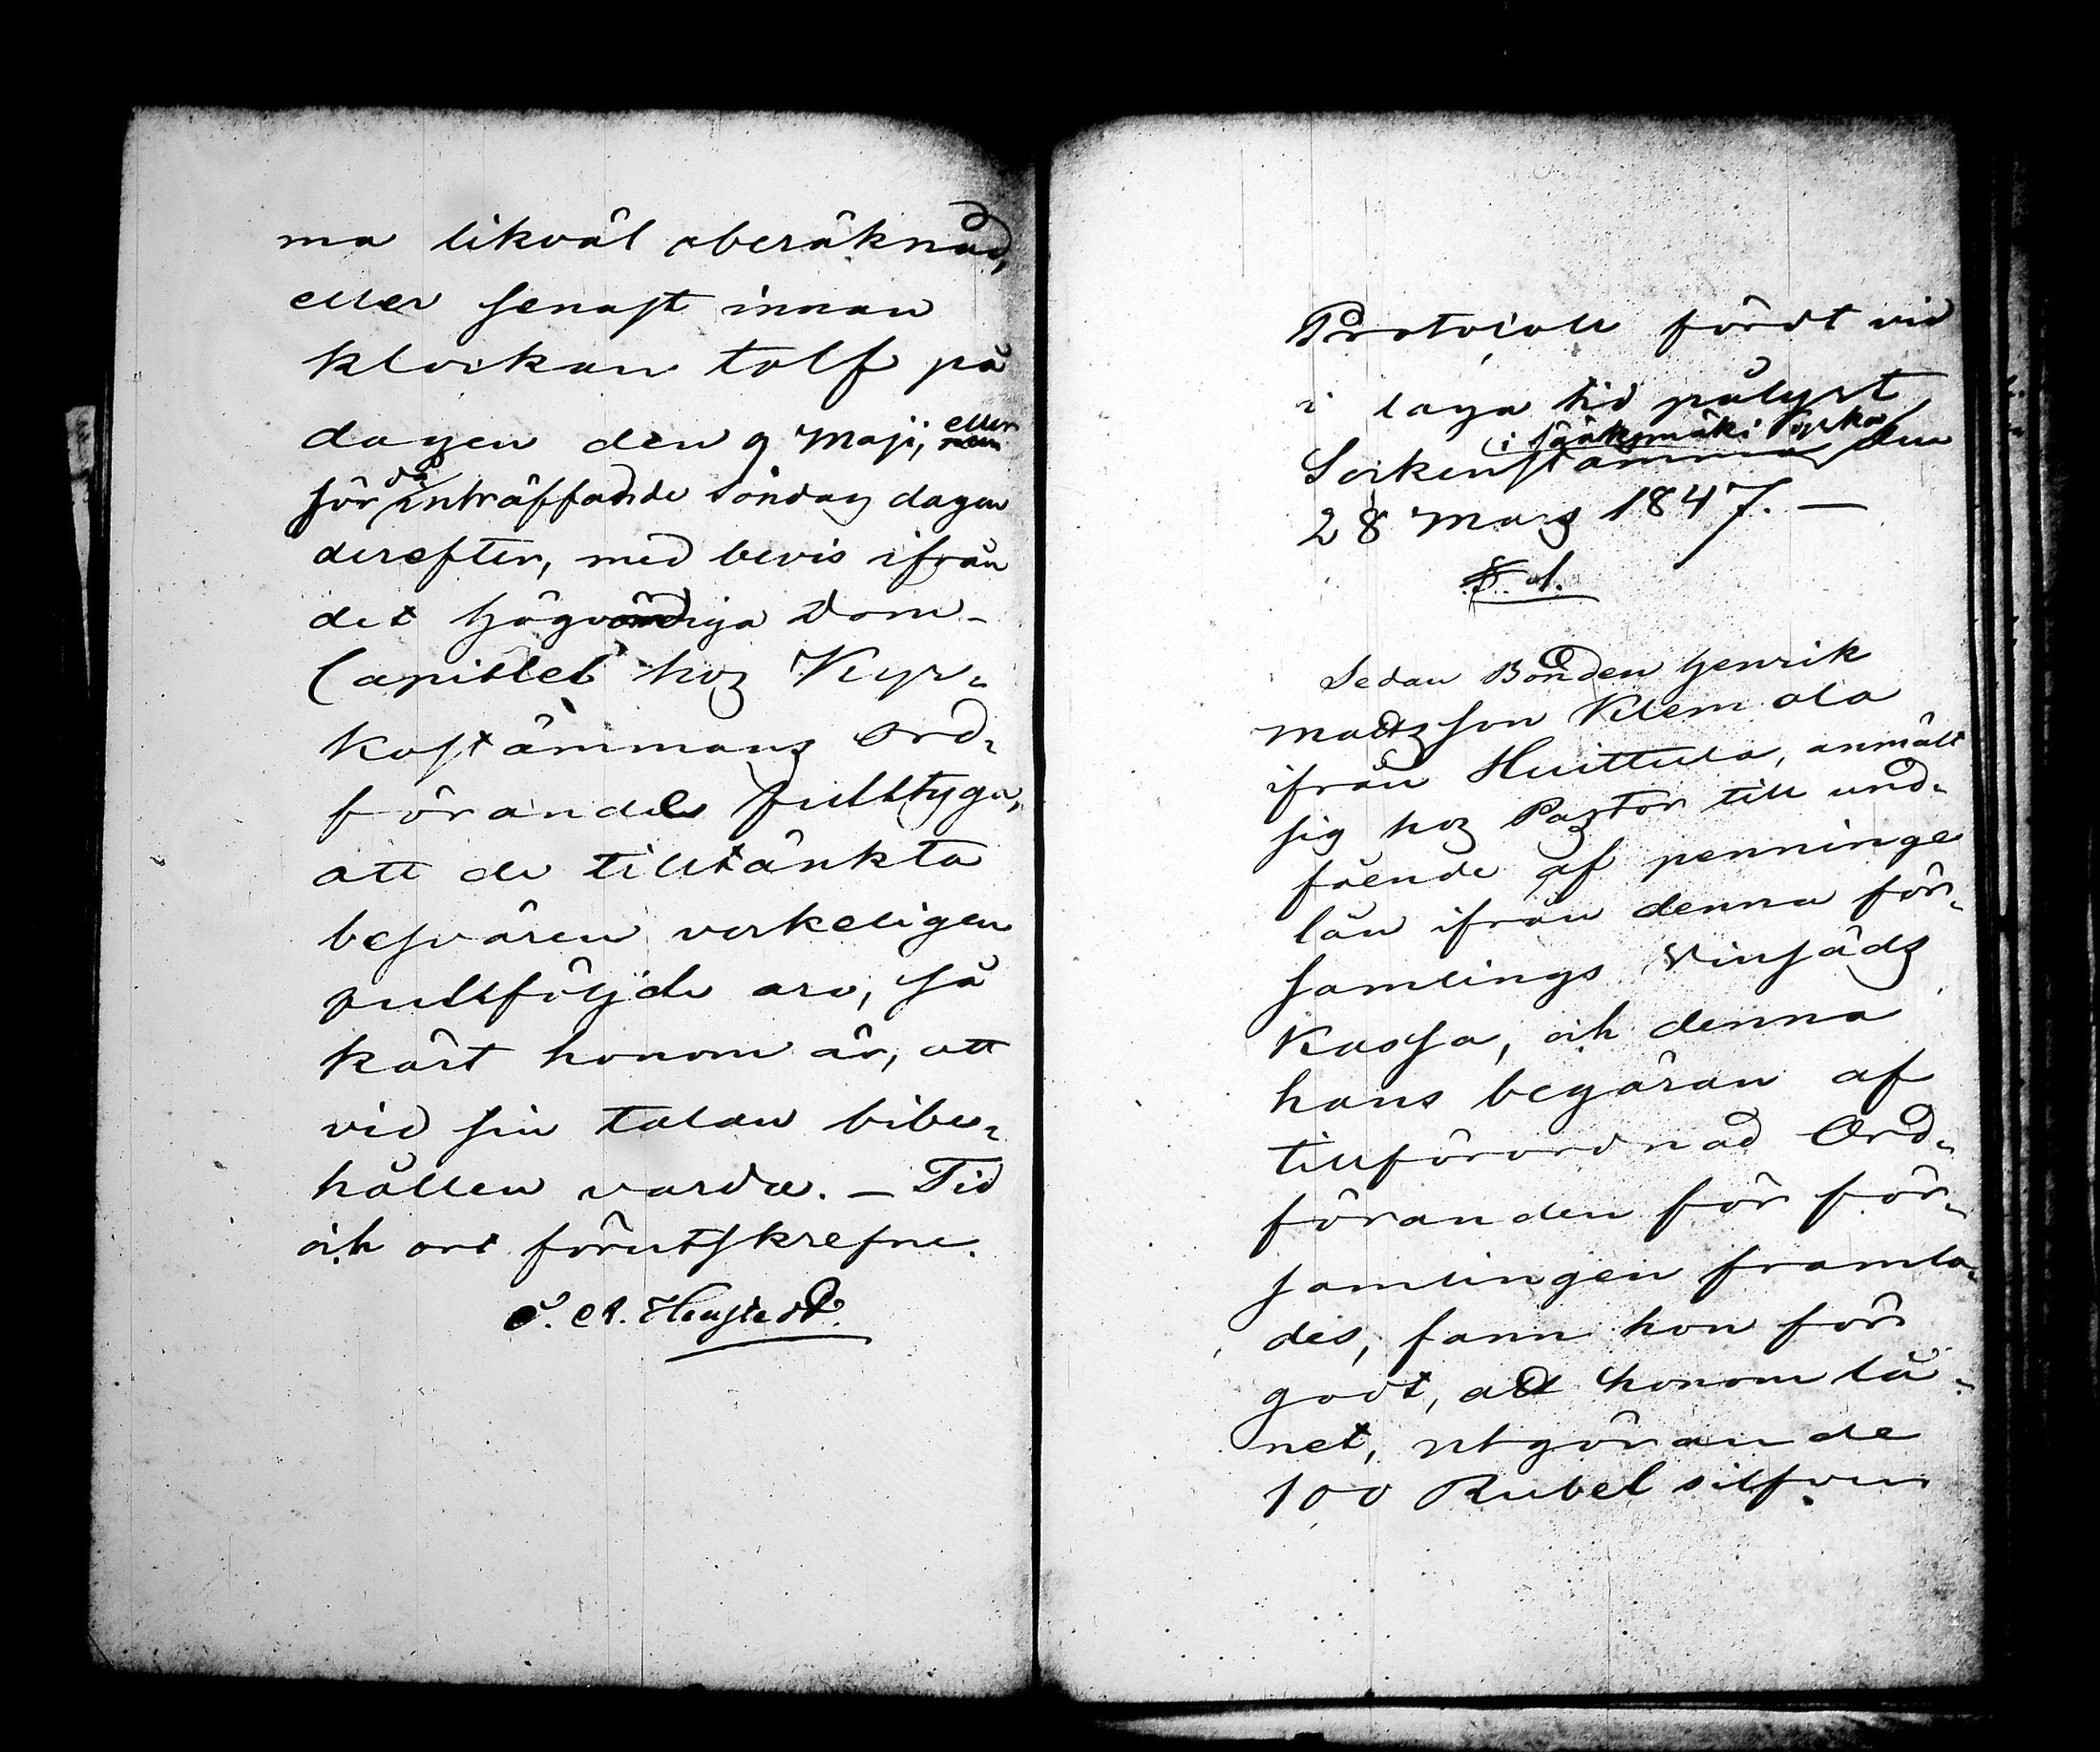 ma likväl oberäknad,
eller senast innan
klockan tolf på
dagen den 9 Maji, eller
för då inträffande Söndag dagen
derefter, med bevis ifrån
det högvördiga Dom-
Capitlet hos Kyr-
kostämmans Ord-
förande fulltyga,
att de tilltänkta
besvären verkeligen
fullföljde äro, så
kärt honom är, att
vid sin talan bibe-
hållen varda. – Tid
och ort förutskrefne.

Protocoll fördt vid
i laga tid pålyst
i Sääksmäki kyrka
Sockenstämma den
28 Mars 1847. –
§ 1.
Sedan Bonden Henrik
Mattsson Klemola
ifrån Huittula, anmält
sig hos Pastor till und-
fående af penninge
lån ifrån denna för-
samlings Vinsäds
Kassa, och denna
hans begäran af
tillförordnad Ord-
föranden för för-
samlingen framla-
des, fann hon för
godt, att honom lå-
net, utgörande
100 Rubel silfver